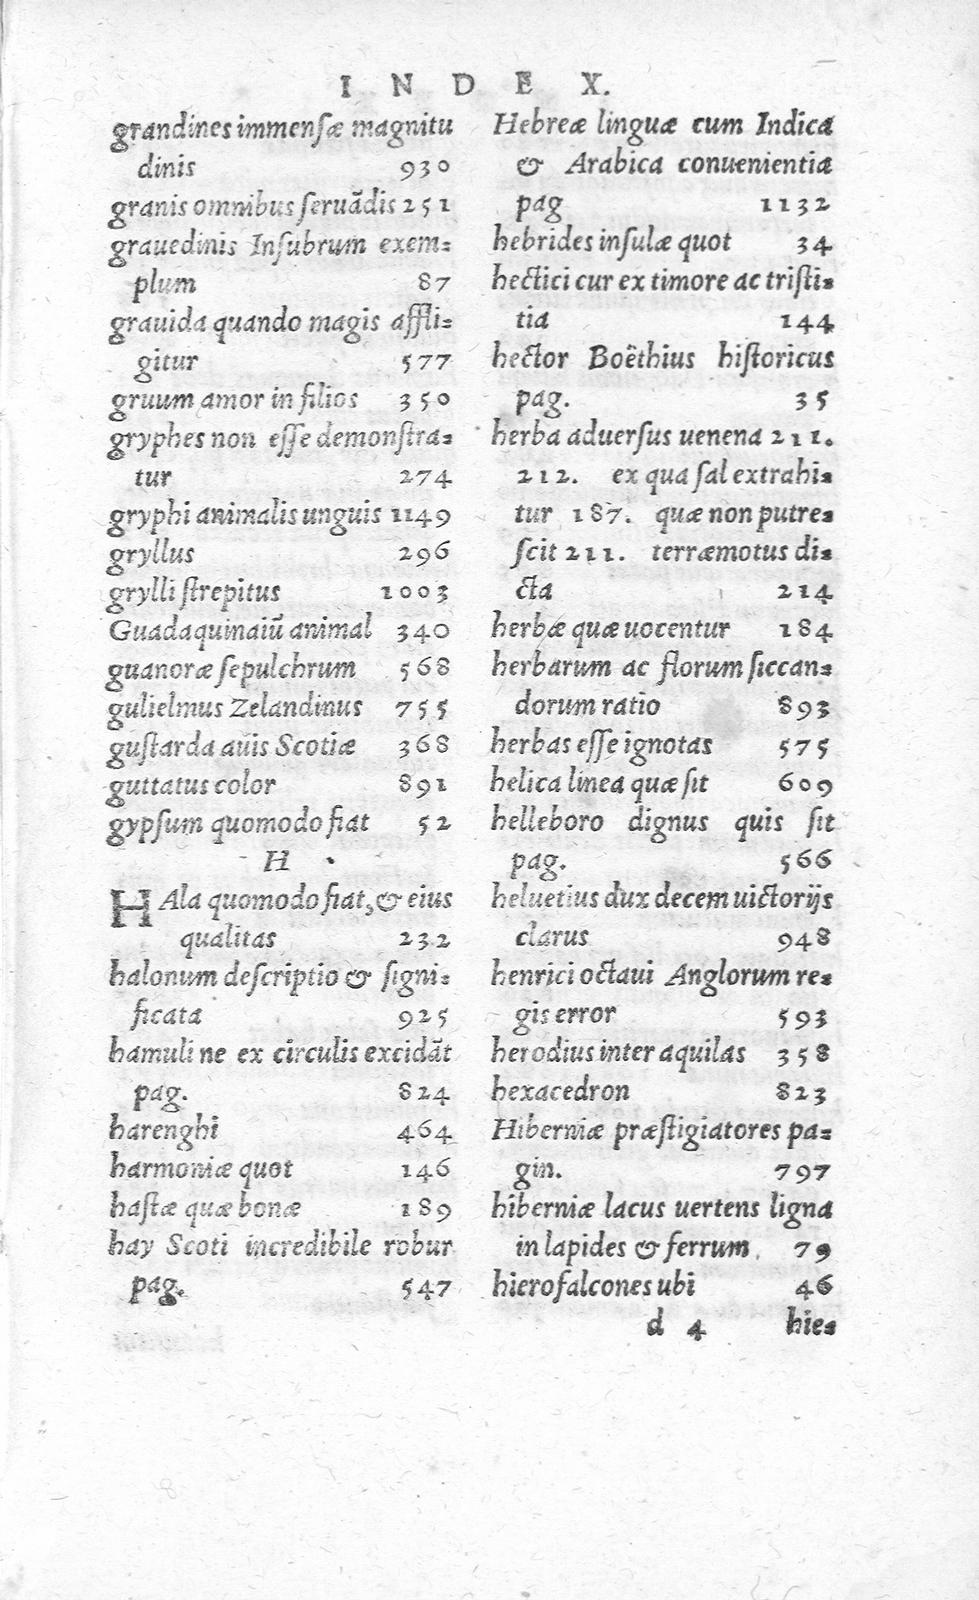 INDEX.
grandines immenſæ magnitu
dinis 930
granis omnibus ſeruādis 251
grauedinis Inſubrum exem-
plum 87
grauida quando magis affli-
gitur 577
gruum amor in filios 350
gryphes non eſſe demonſtra-
tur 274
gryphi animalis unguis 1149
gryllus 296
grylli ſtrepitus 1003
Guadaquinaiū animal 340
guanoræ ſepulchrum 568
gulielmus Zelandinus 755
guſtarda auis Scotiæ 368
guttatus color 891
gypſum quomodo fiat 52
H
HAla quomodo fiat, & eius
qualitas 232
halonum deſcriptio & ſigni-
ficata 925
hamuli ne ex circulis excidāt
pag. 824
harenghi 464
harmoniæ quot 146
haſtæ quæ bonæ 189
hay Scoti incredibile robur
pag. 547
Hebreæ linguæ cum Indica
& Arabica conuenientia
pag 1132
hebrides inſulæ quot 34
hectici cur ex timore ac triſti-
tia 144
hector Boëthius hiſtoricus
pag. 35
herba aduerſus uenena 211.
212. ex qua ſal extrahi-
tur 187. quæ non putre-
ſcit 211. terræmotus di-
cta 214
herbæ quæ uocentur 184
herbarum ac florum ſiccan-
dorum ratio 893
herbas eſſe ignotas 575
helica linea quæ ſit 609
helleboro dignus quis ſit
pag. 566
heluetius dux decem uictorijs
clarus 948
henrici octaui Anglorum re-
gis error 593
herodius inter aquilas 358
hexacedron 823
Hiberniæ præſtigiatores pa-
gin. 797
hiberniæ lacus uertens ligna
in lapides & ferrum 79
hierofalcones ubi 46
d 4 hie-